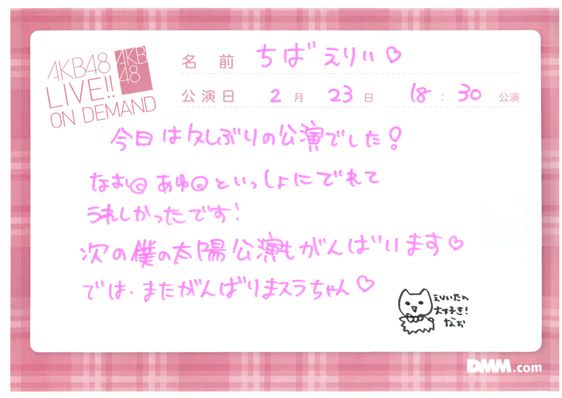 AKB48
LIVE!!
ON DEMAND
AKB
48
名前 ちばえりい♡
公演日 2月 23日 18:30 公演
今日は久しぶりの公演でした!
なお@ あゆ@といっしょにでれて
うれしかったです!
次の僕の太陽公演もがんばります♡
では、またがんばりまスラちゃん♡
えりいたん
大好き!
なお
DMM.com